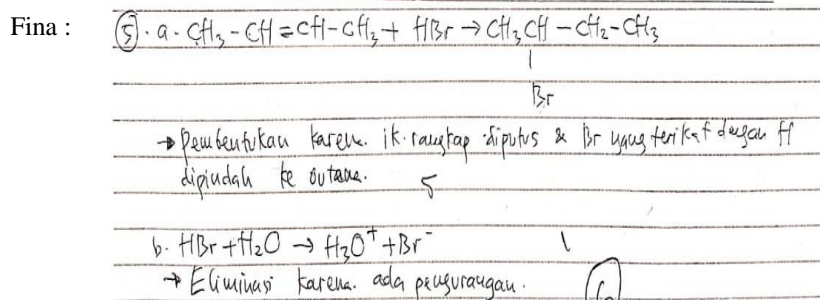 Fina :
5. a. CH3-CH=CH-CH3 + HBr → CH3CH-CH2-CH3
|
Br
→ Pembentukan karena. ik. rangkap diputus & Br yang terikat dengan H
dipindah ke butana.
5
b. HBr + H2O → H3O+ + Br-
1
→ Eliminasi karena. ada pengurangan.
6